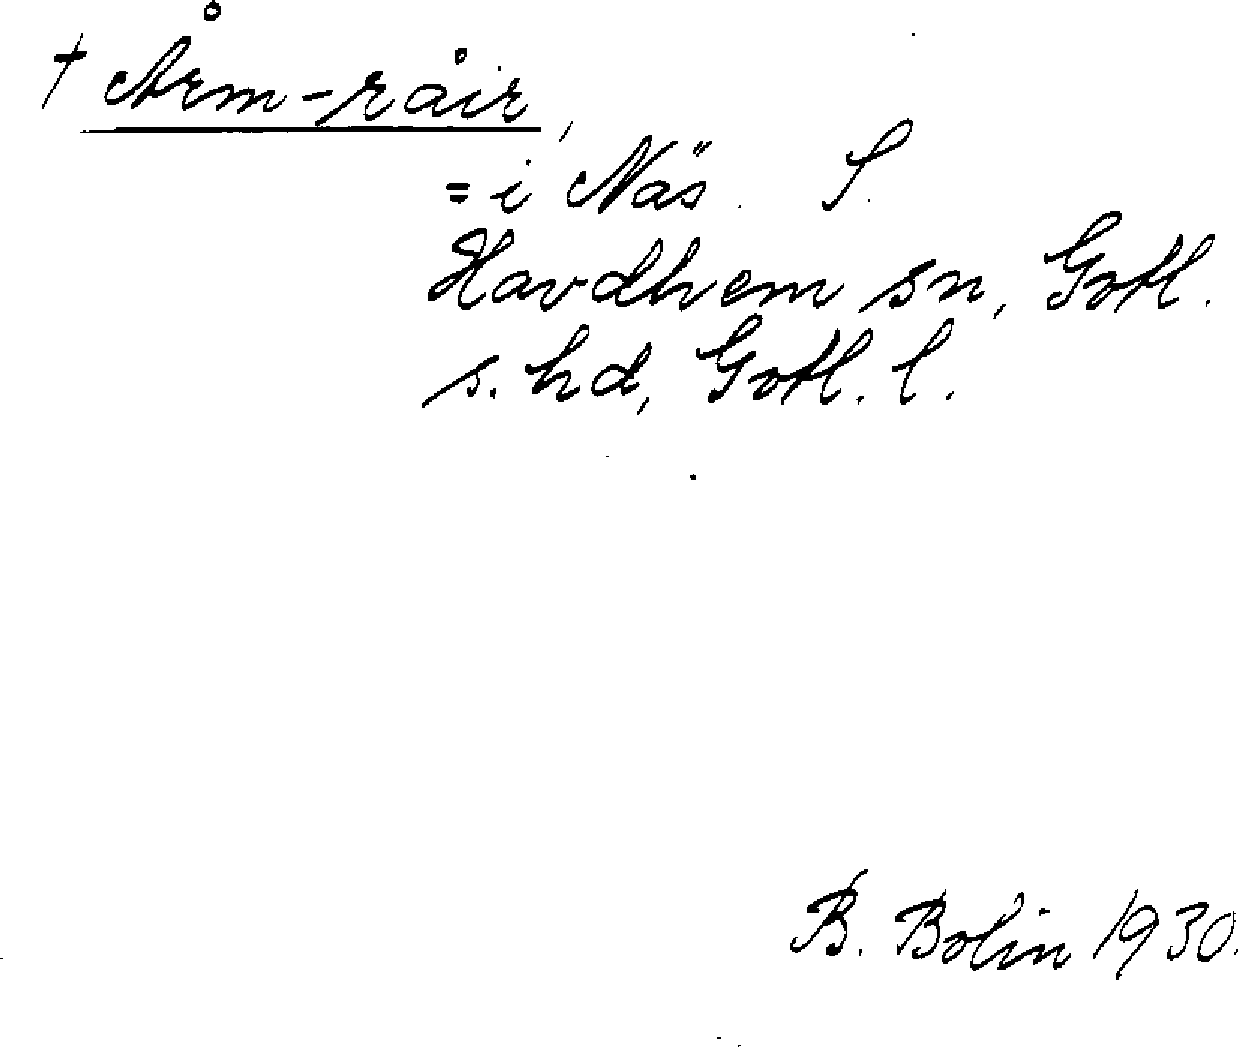 † Årm-råir,
= i Näs. S.
Havdhem sn, Gotl.
s. hd, Gotl. l.
B. Bolin 1930.